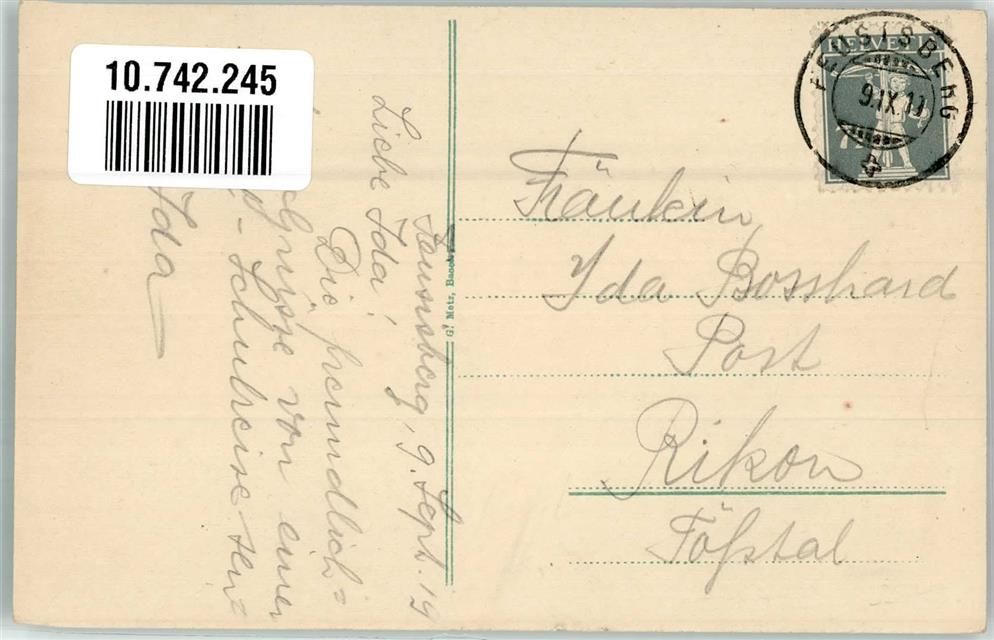 10.742.245
HELVETIA
FEUSISBERG
9.IX.19
7½
Fräulein
Ida Bosshard
Post
Rikon
Tößtal
G. Metz, Basel
Feusisberg, 9. Sept. 19
Liebe Ida!
Die freundlich=
Grüsse von einer
Schulreise sen
Ida